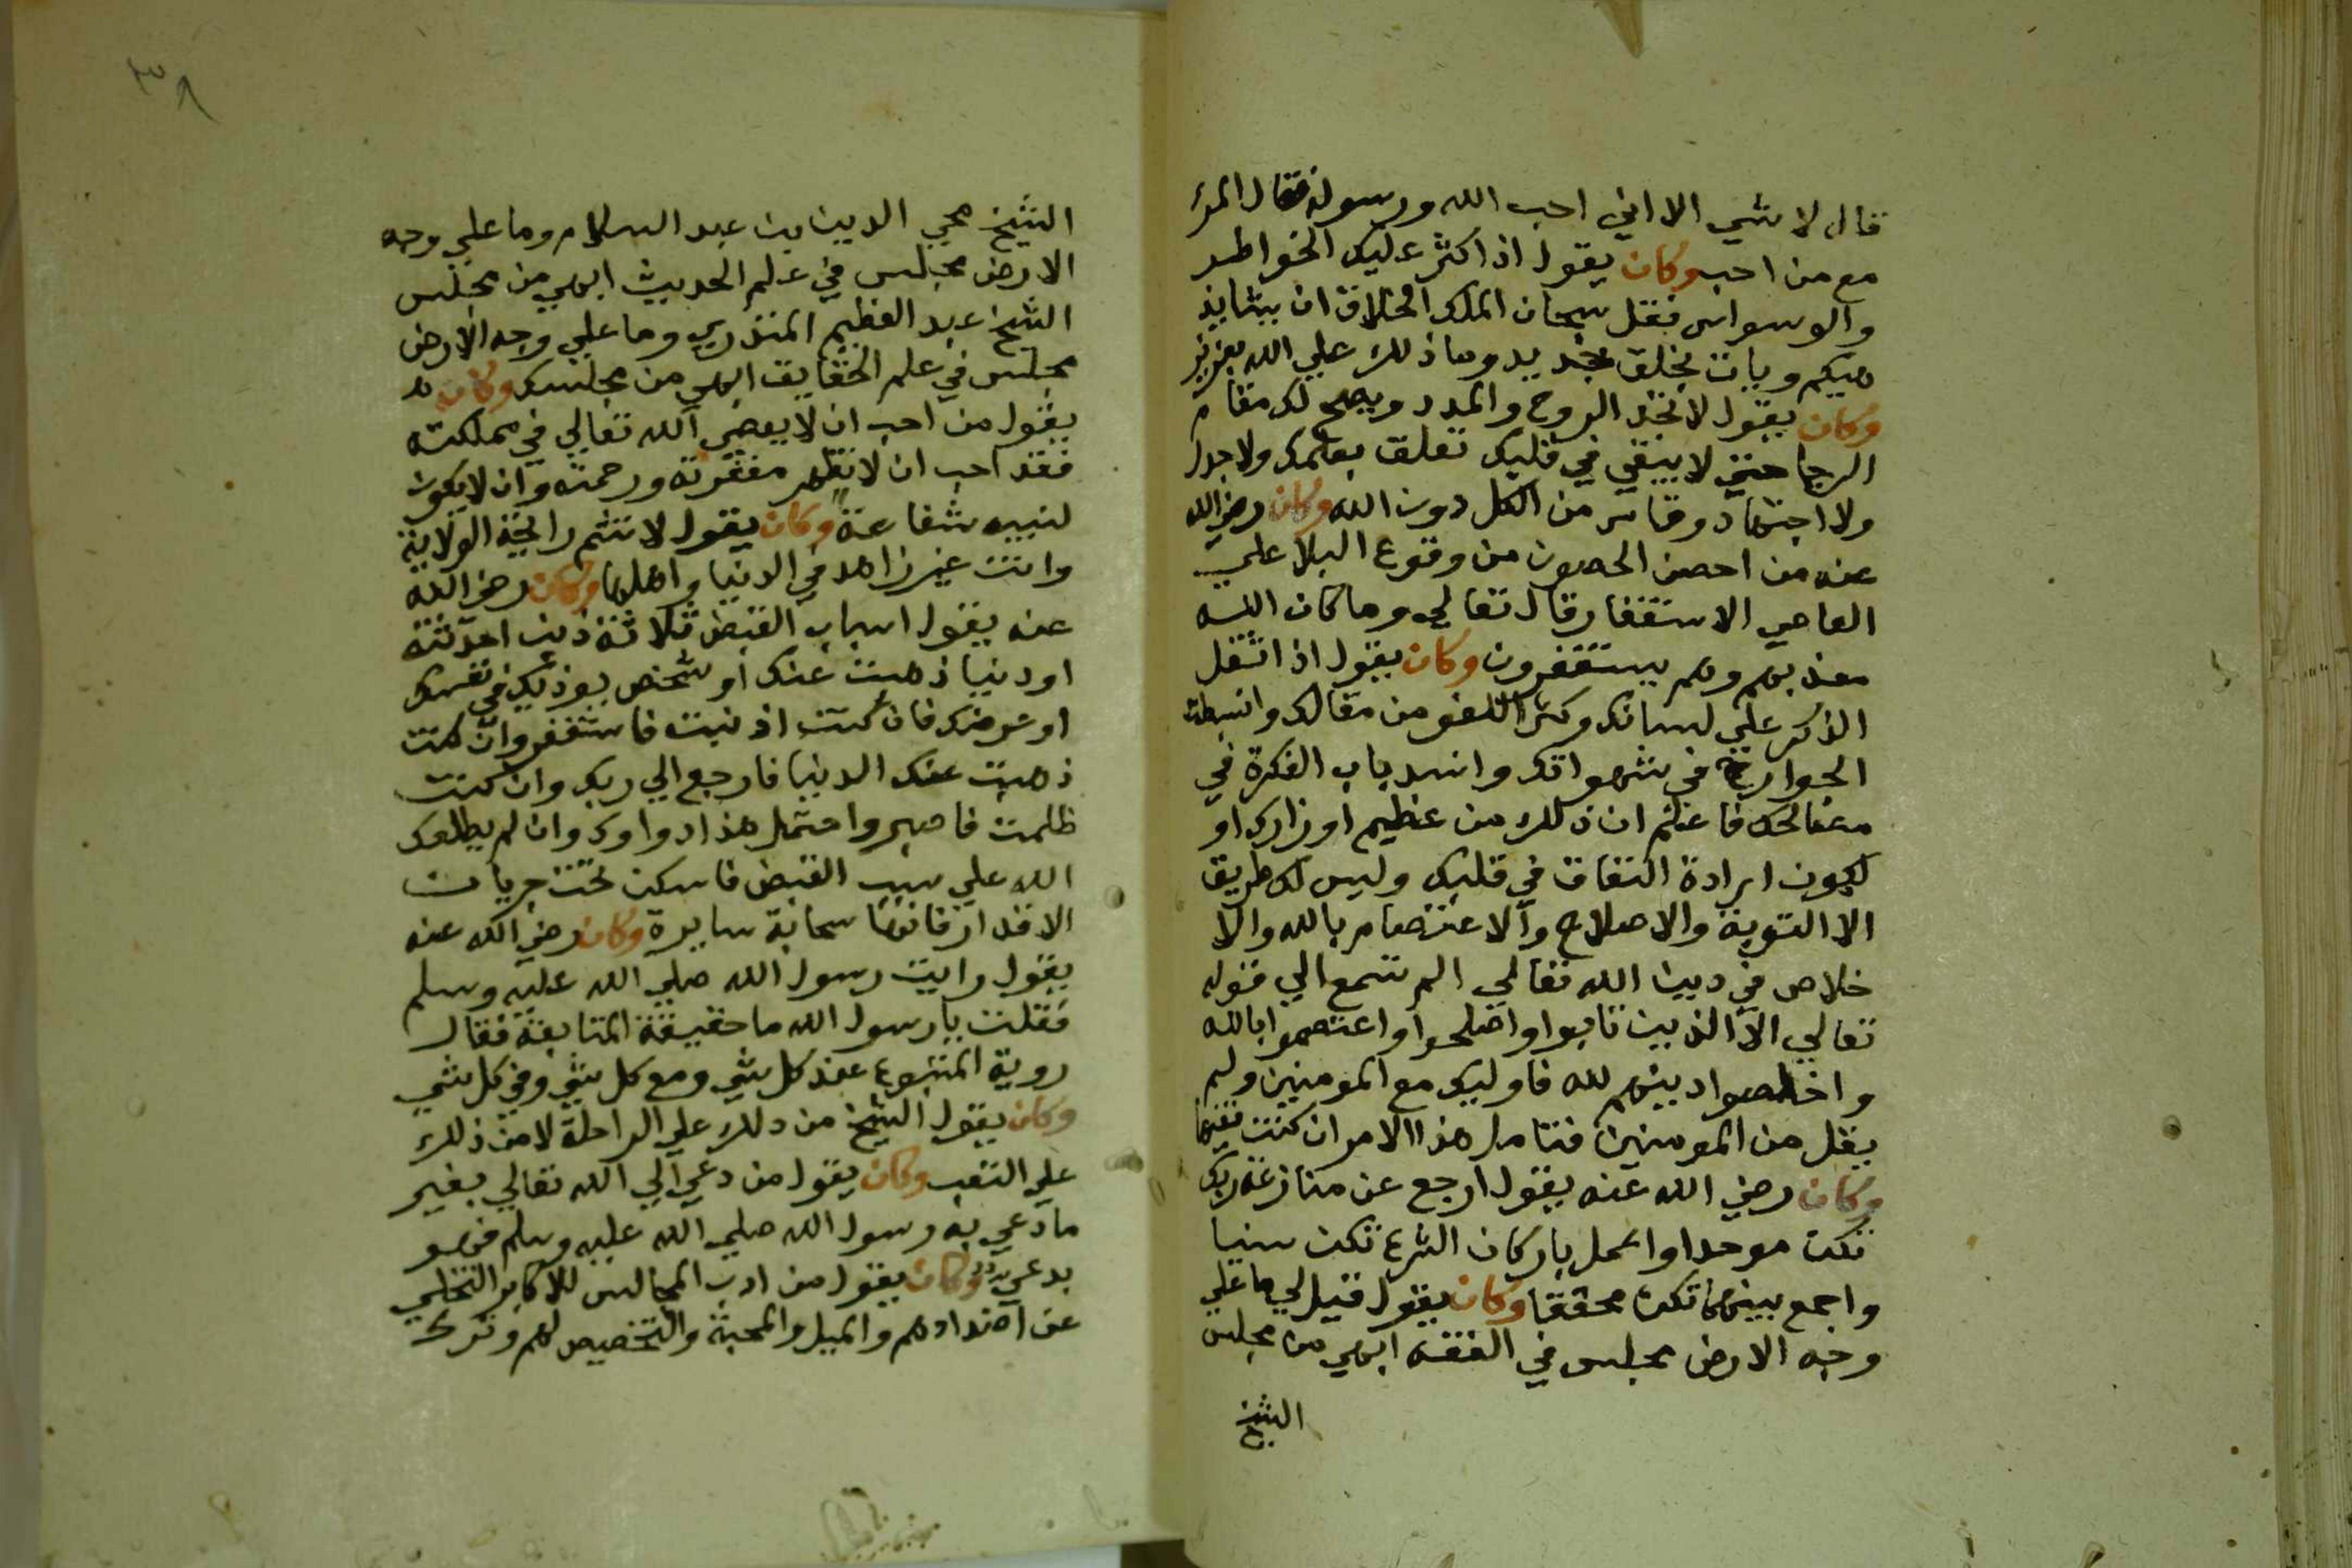 قال لا شي الا اني احب الله ورسوله فقال المرء
مع من احب وكان يقول اذا كثر عليك الخواطر
والوسواس فقل سبحان الملك الخلاق ان يشا يذ
هبكم ويات بخلق جديد وما ذلك علي الله بعزيز
وكان يقول لا تجد الروح والمدد ويصح لك مقام
الرجا حتي لا يبقي في قلبك تعلق بعلمك ولا جدك
ولا اجتهادك وتاس من الكل دون الله وكان رضي الله
عنه من احصن الحصون من وقوع البلا علي
المعاصي الاستغفار قال تعالي وما كان الله
معذبهم وهم يستغفرون وكان يقول اذا ثقل
الذكر علي لسانك وكثر اللغو من مقالك وانبسطت
الجوارح في شهواتك وانسد باب الفكرة في
مصالحك فاعلم ان ذلك من عظيم اوزارك او
لكون ارادة النفاق في قلبك وليس لك طريق
الا التوبة والاصلاح والاعتصام بالله والا
خلاص في دين الله تعالي الم تسمع الي قوله
تعالي الا الذين تابوا واصلحوا واعتصموا بالله
واخلصوا دينهم لله فاوليك مع المومنين ولم
يقل من المومنين فتامل هذا الامر ان كنت فقيها
وكان رضي الله عنه يقول ارجع عن منازعة ربك
تكن موحدا واعمل باركان الشرع تكن سنيا
واجمع بينهما تكن محققا وكان يقول قيل لي ما علي
وجه الارض مجلس في الفقه ابهي من مجلس
الشيخ
٣٨
الشيخ محيي الدين بن عبد السلام وما علي وجه
الارض مجلس في علم الحديث ابهي من مجلس
الشيخ عبد العظيم المنذري وما علي وجه الارض
مجلس في علم الحقايق ابهي من مجلسك وكان
يقول من احب ان لا يعصي الله تعالي في مملكته
فقد احب ان لا تظهر مغفرته ورحمته وان لا يكون
لنبيه شفاعة وكان يقول لا تشم رايحة الولاية
وانت غير زاهد في الدنيا واهلها وكان رضي الله
عنه يقول اسباب القبض ثلاثة ذنب احدثته
او دنيا ذهبت عنك او شخص يوذيك في نفسك
او عرضك فان كنت اذنبت فاستغفر وان كنت
ذهبت عنك الدنيا فارجع الي ربك وان كنت
ظلمت فاصبر واحتمل هذا دواوك وان لم يطلعك
الله علي سبب القبض فاسكن تحت جريان
الاقدار فانها سحابة سايرة وكان رضي الله عنه
يقول رايت رسول الله صلي الله عليه وسلم
فقلت يا رسول الله ما حقيقة المتابعة فقال
روية المتبوع عند كل شي ومع كل شي وفي كل شي
وكان يقول الشيخ من دلك علي الراحلة لا من ذلك
علي التعب وكان يقول من دعي الي الله تعالي بغير
ما دعي به رسول الله صلي الله عليه وسلم فهو
بدعي وكان يقول من ادب المجالس للاكابر التخلي
عن اضدادهم والميل والمحبة والتخصيص لهم وترك